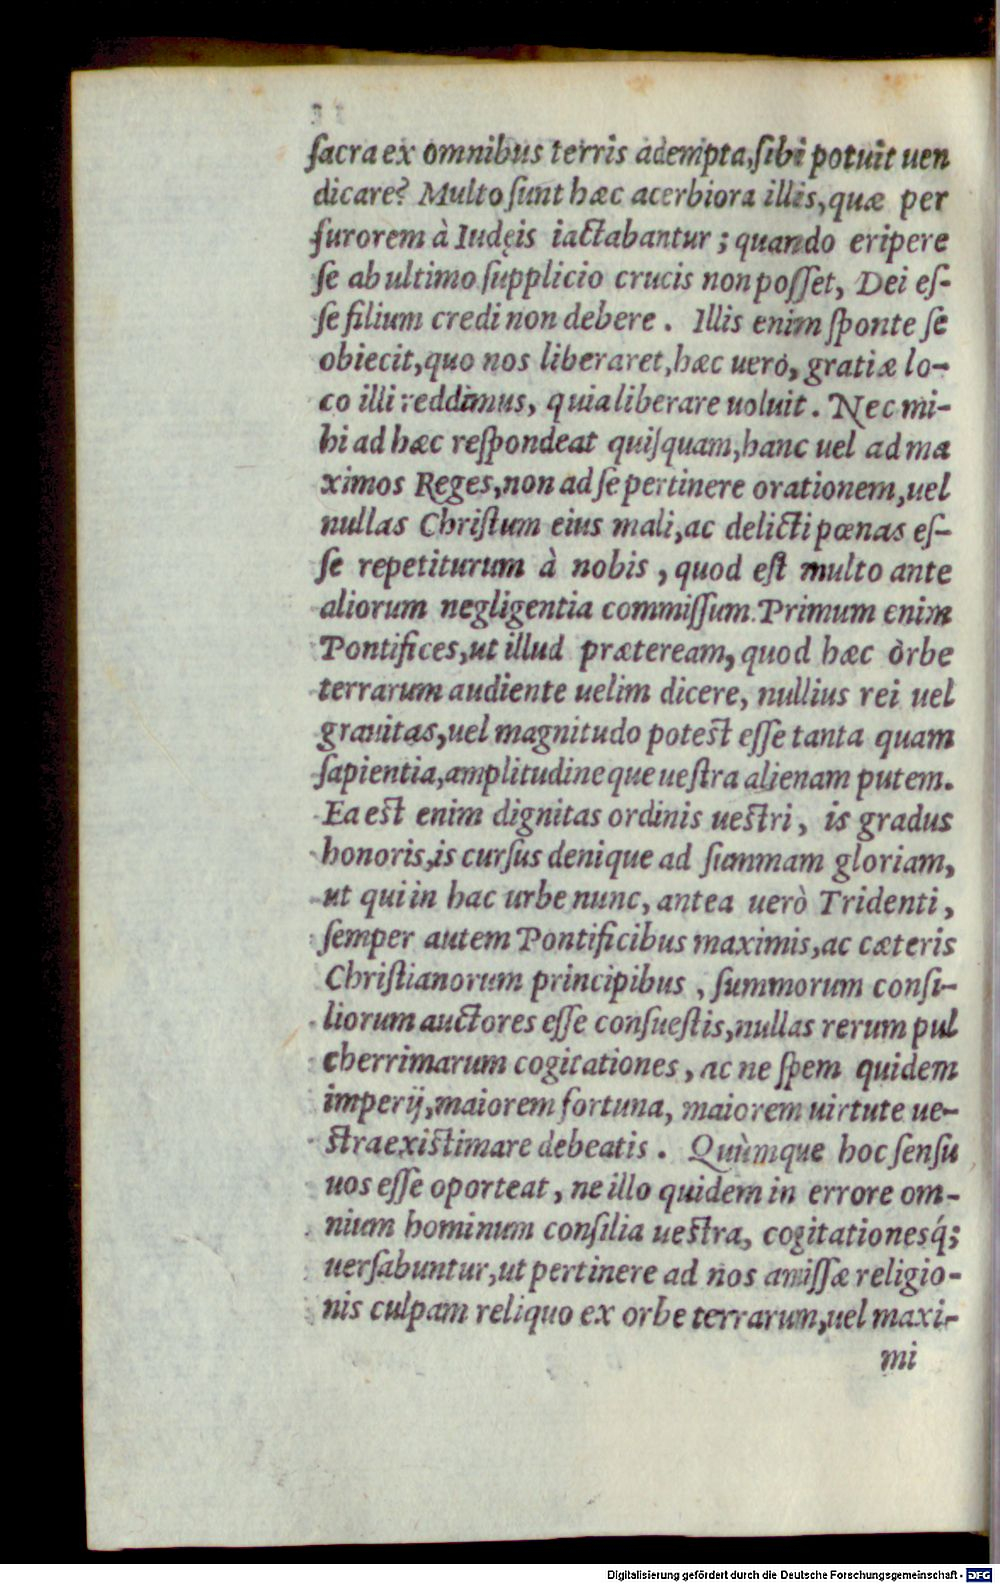 ſacra ex omnibus terris adempta, ſibi potuit uen
dicare? Multo ſunt hæc acerbiora illis, quæ per
furorem à Iudęis iactabantur; quando eripere
ſe ab ultimo ſupplicio crucis non poſſet, Dei eſ-
ſe filium credi non debere. Illis enim ſponte ſe
obiecit, quo nos liberaret, hæc uerò, gratiæ lo-
co illi reddimus, quia liberare uoluit. Nec mi-
hi ad hæc reſpondeat quiſquam, hanc uel ad ma
ximos Reges, non ad ſe pertinere orationem, uel
nullas Chriſtum eius mali, ac delicti pœnas eſ-
ſe repetiturum à nobis, quod eſt multo ante
aliorum negligentia commiſſum. Primum enim
Pontifices, ut illud præteream, quod hæc òrbe
terrarum audiente uelim dicere, nullius rei uel
grauitas, uel magnitudo poteſt eſſe tanta quam
ſapientia, amplitudineque ueſtra alienam putem.
Ea eſt enim dignitas ordinis ueſtri, is gradus
honoris, is curſus denique ad ſummam gloriam,
ut qui in hac urbe nunc, antea uerò Tridenti,
ſemper autem Pontificibus maximis, ac cæteris
Chriſtianorum principibus, ſummorum conſi-
liorum auctores eſſe conſueſtis, nullas rerum pul
cherrimarum cogitationes, ac ne ſpem quidem
imperij, maiorem fortuna, maiorem uirtute ue-
ſtra exiſtimare debeatis. Quùmque hoc ſenſu
uos eſſe oporteat, ne illo quidem in errore om-
nium hominum conſilia ueſtra, cogitationesq́;
uerſabuntur, ut pertinere ad nos amiſſæ religio-
nis culpam reliquo ex orbe terrarum, uel maxi-
mi
Digitalisierung gefördert durch die Deutsche Forschungsgemeinschaft - DFG